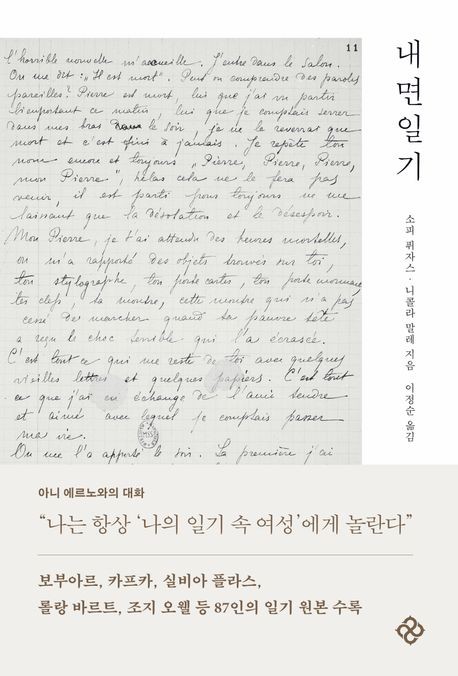 11
l'horrible nouvelle m'accueille. J'entre dans le salon.
On me dit : „Il est mort". Peut on comprendre des paroles
pareilles? Pierre est mort, lui que j'ai vu partir
bien portant ce matin, lui que je comptais serrer
dans mes bras le soir, je ne le reverrai que
mort et c'est fini à jamais. Je répète ton
nom encore et toujours „Pierre, Pierre, Pierre,
mon Pierre", hélas cela ne le fera pas
venir, il est parti pour toujours ne me
laissant que la désolation et le désespoir.
Mon Pierre, je t'ai attendu des heures mortelles,
on m'a rapporté des objets trouvés sur toi,
ton stylographe, ton porte cartes, ton porte monnaie,
tes clefs, ta montre, cette montre qui n'a pas
cessé de marcher quand ta pauvre tête
a reçu le choc terrible qui l'a écrasée.
C'est tout ce qui me reste de toi avec quelques
vieilles lettres et quelques papiers. C'est tout
ce que j'ai en échange de l'ami tendre
et aimé avec lequel je comptais passer
ma vie.
On me l'a apporté le soir. La première j'ai
내면일기
소피 퓌자스 · 니콜라 말레 지음 이정순 옮김
아니 에르노와의 대화
“나는 항상 ‘나의 일기 속 여성’에게 놀란다”
보부아르, 카프카, 실비아 플라스,
롤랑 바르트, 조지 오웰 등 87인의 일기 원본 수록